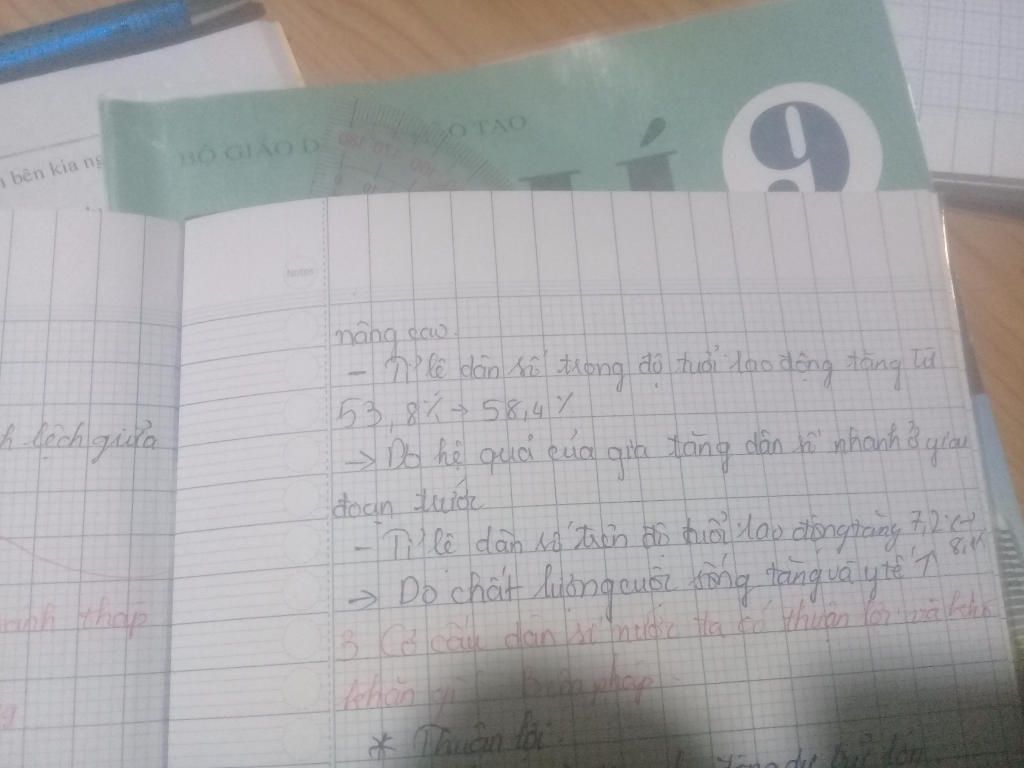 n bên kia ng
BỘ GIÁO D O TẠO
Í 9
Notes
h lệch giữa
nâng cao.
- Tỉ lệ dân số trong độ tuổi lao động tăng từ
53,8% → 58,4%
→ Do hệ quả của gia tăng dân số nhanh ở giai
đoạn trước
- Tỉ lệ dân số trên độ tuổi lao động tăng 7,2% →
8,1%
→ Do chất lượng cuộc sống tăng và y tế ↑
tháp
3 Cơ cấu dân số nước ta có thuận lợi và khó
khăn gì Biện pháp
* Thuận lợi